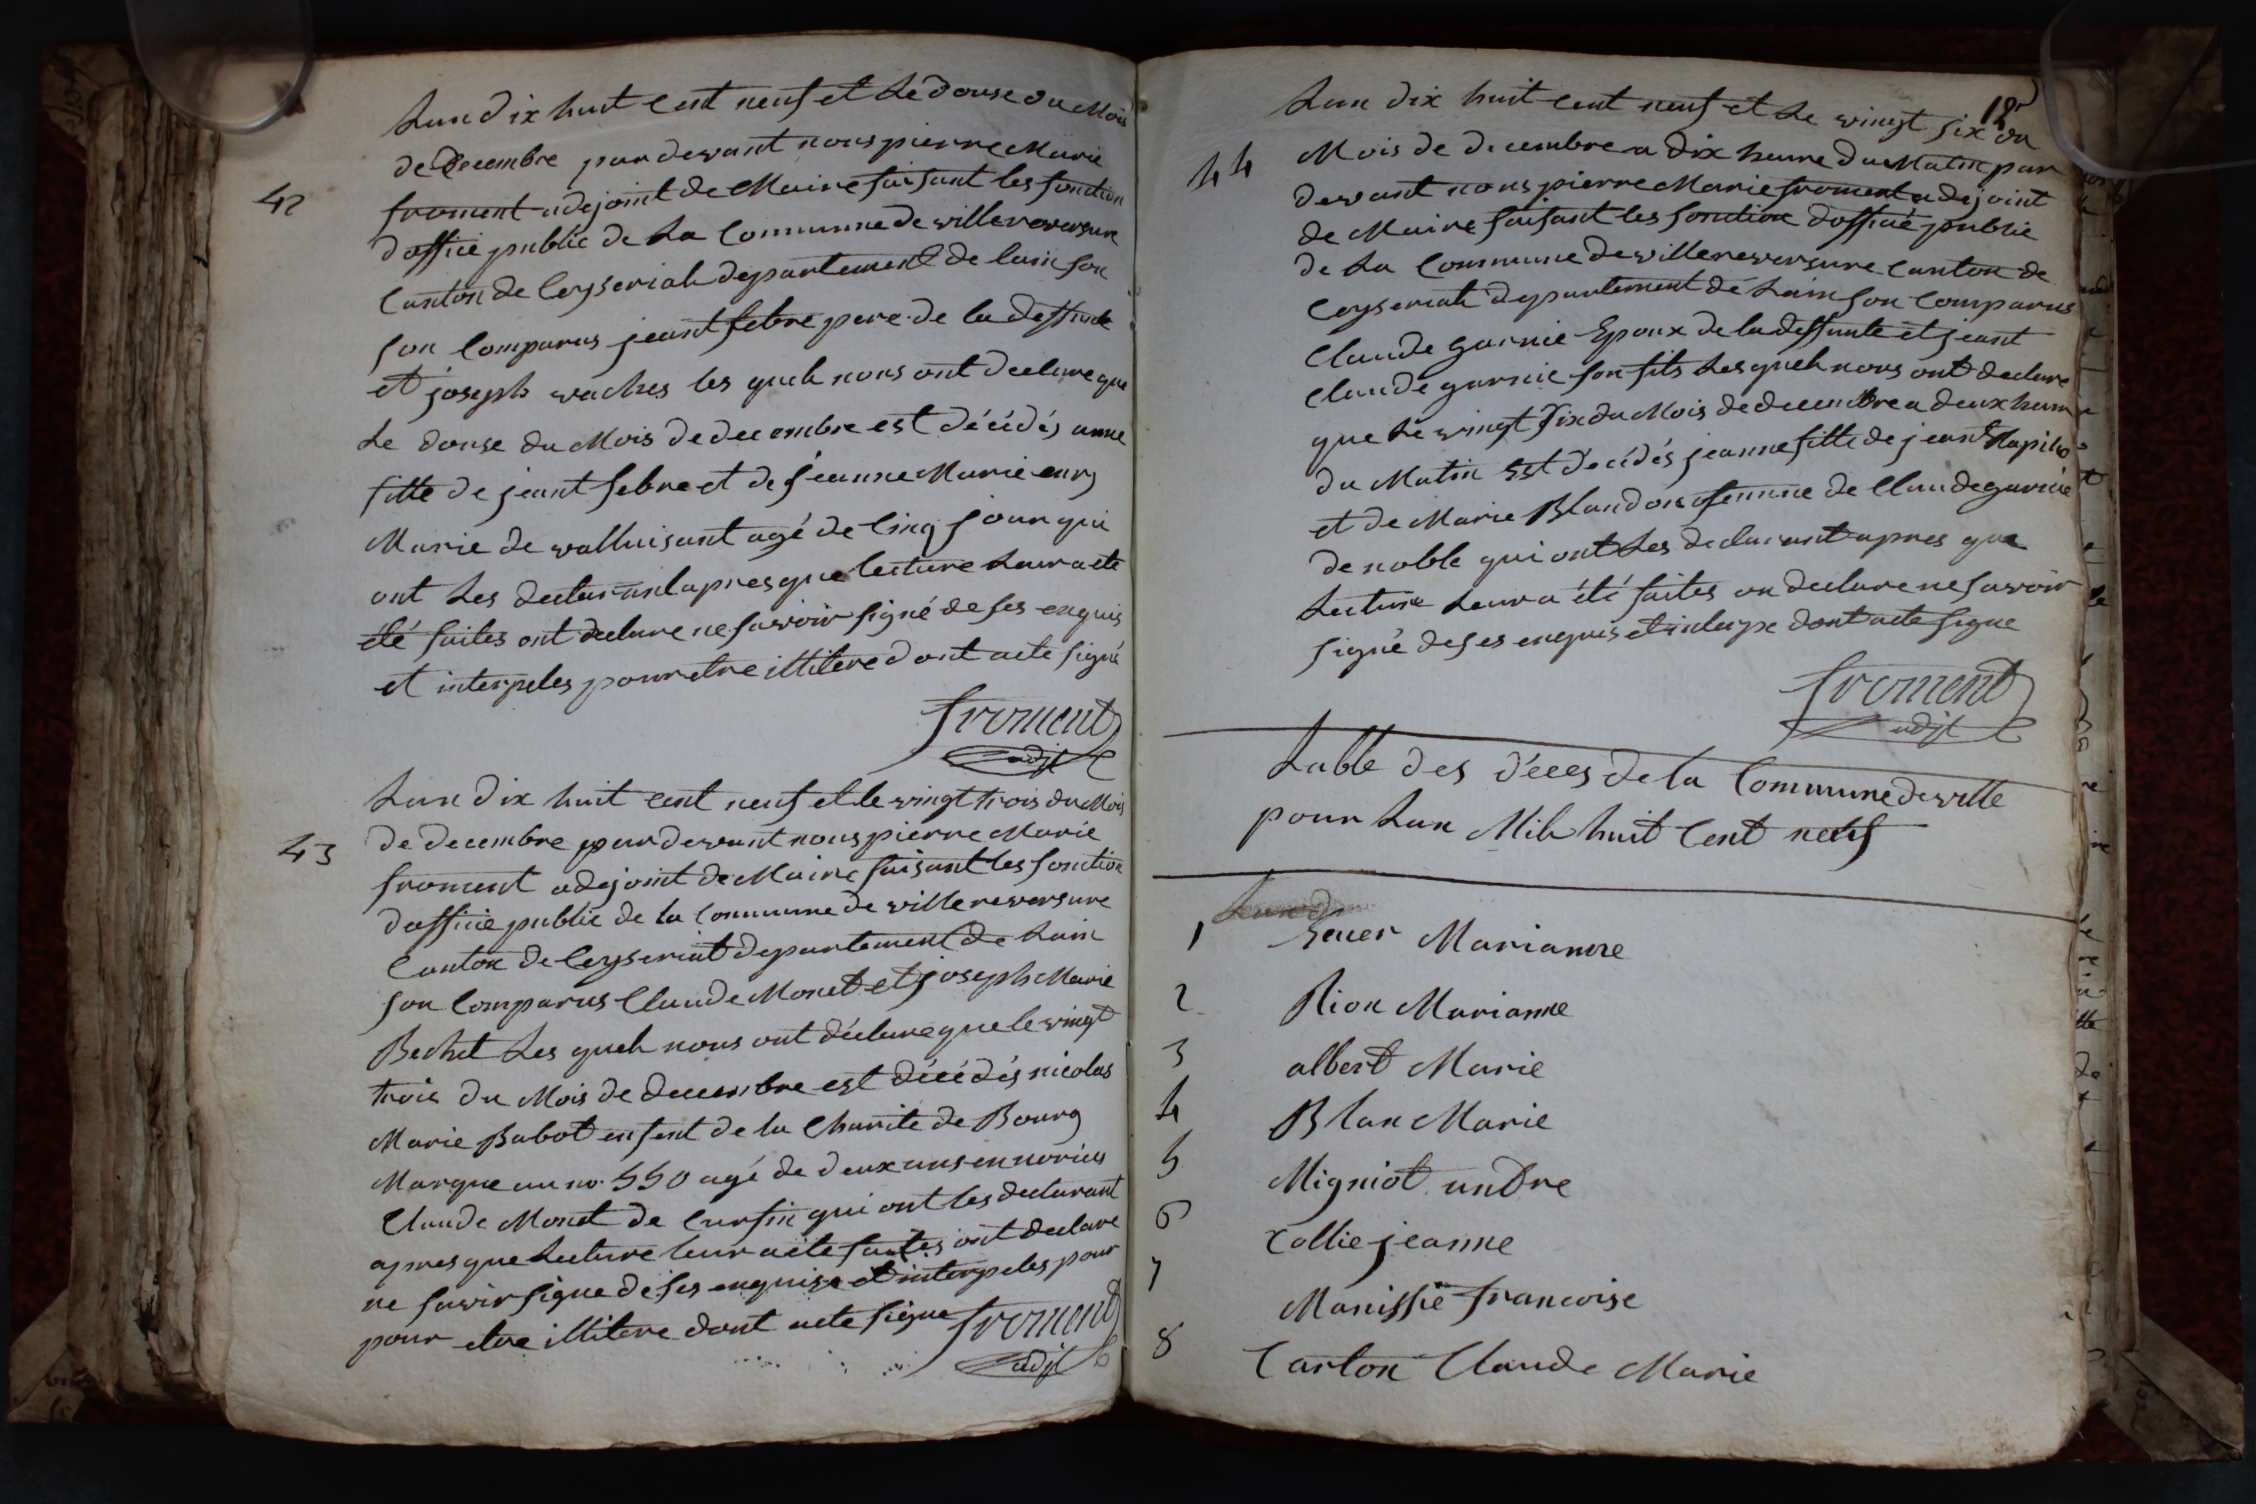 42
Lan dix huit cent neuf et Le douse du Mois
de decembre par devant nous pierre Marie
froment adejoint de Maire faisant les fonction
doffice public de La Commune de villereversure
Canton de Ceyseriah departement de lain son
son Comparus jeant febre pere de la deffunte
et joseph vaches les quels nous ont declare que
Le douse du Mois de decembre est décédés anne
fille de jeant febre et de jeanne Marie
Marie de valluisant agé de Cinq jour qui
ont Les declarant apres que lecture Leur a ete
été faites ont declare ne savoir signé de ses enquis
et interpeles pour etre illitere dont acte signé
froment
adjt
43
Lan dix huit cent neuf et le vingt trois du Mois
de decembre par devant nous pierre Marie
froment adejoint de Maire faisant les fonction
doffice public de la Commune de villereversure
Canton de Ceyseriat departement de Lain
son Comparus Claude Monet et joseph Marie
Bechet Les quels nous ont déclare que le vingt
trois du Mois de decembre est décédés nicolas
Marie Babot enfent de la Charite de Bourg
Marque au no. 550 agé de deux ans en norice
Claude Monet de Curfin qui ont les declarant
apres que Lecture leur a ete faites ont declare
ne savoir signe de ses enquise et interpeles pour
pour etre illitere dont acte signe froment
adjt
44
Lan dix huit cent neuf et Le vingt six du
Mois de decembre a dix heure du Matin par
devant nous pierre Marie froment adejoint
de Maire faisant les fonction doffice public
de La Commune de villereversure Canton de
Ceyseriat departement de Lain son Comparus
Claude garnie Epoux de la deffunte et jeant
Claude garnie son fils Les quels nous ont declare
que Le vingt six du Mois de decembre a deux heure
du Matin Est décédés jeanne fille de jeant
et de Marie Blandon femme de Claude garnie
de noble qui ont Les declarant apres que
Lecture Leur a été faites on declare ne savoir
signé de ses enquis et interpe dont acte signe
froment
adjt
Table des déces de la Commune de ville
pour Lan Mil huit Cent neuf
1 Marianne
2 Rion Marianne
3 albert Marie
4 Blan Marie
5 Migniot andre
6 Collie jeanne
7 Manissie francoise
8 Carton Claude Marie